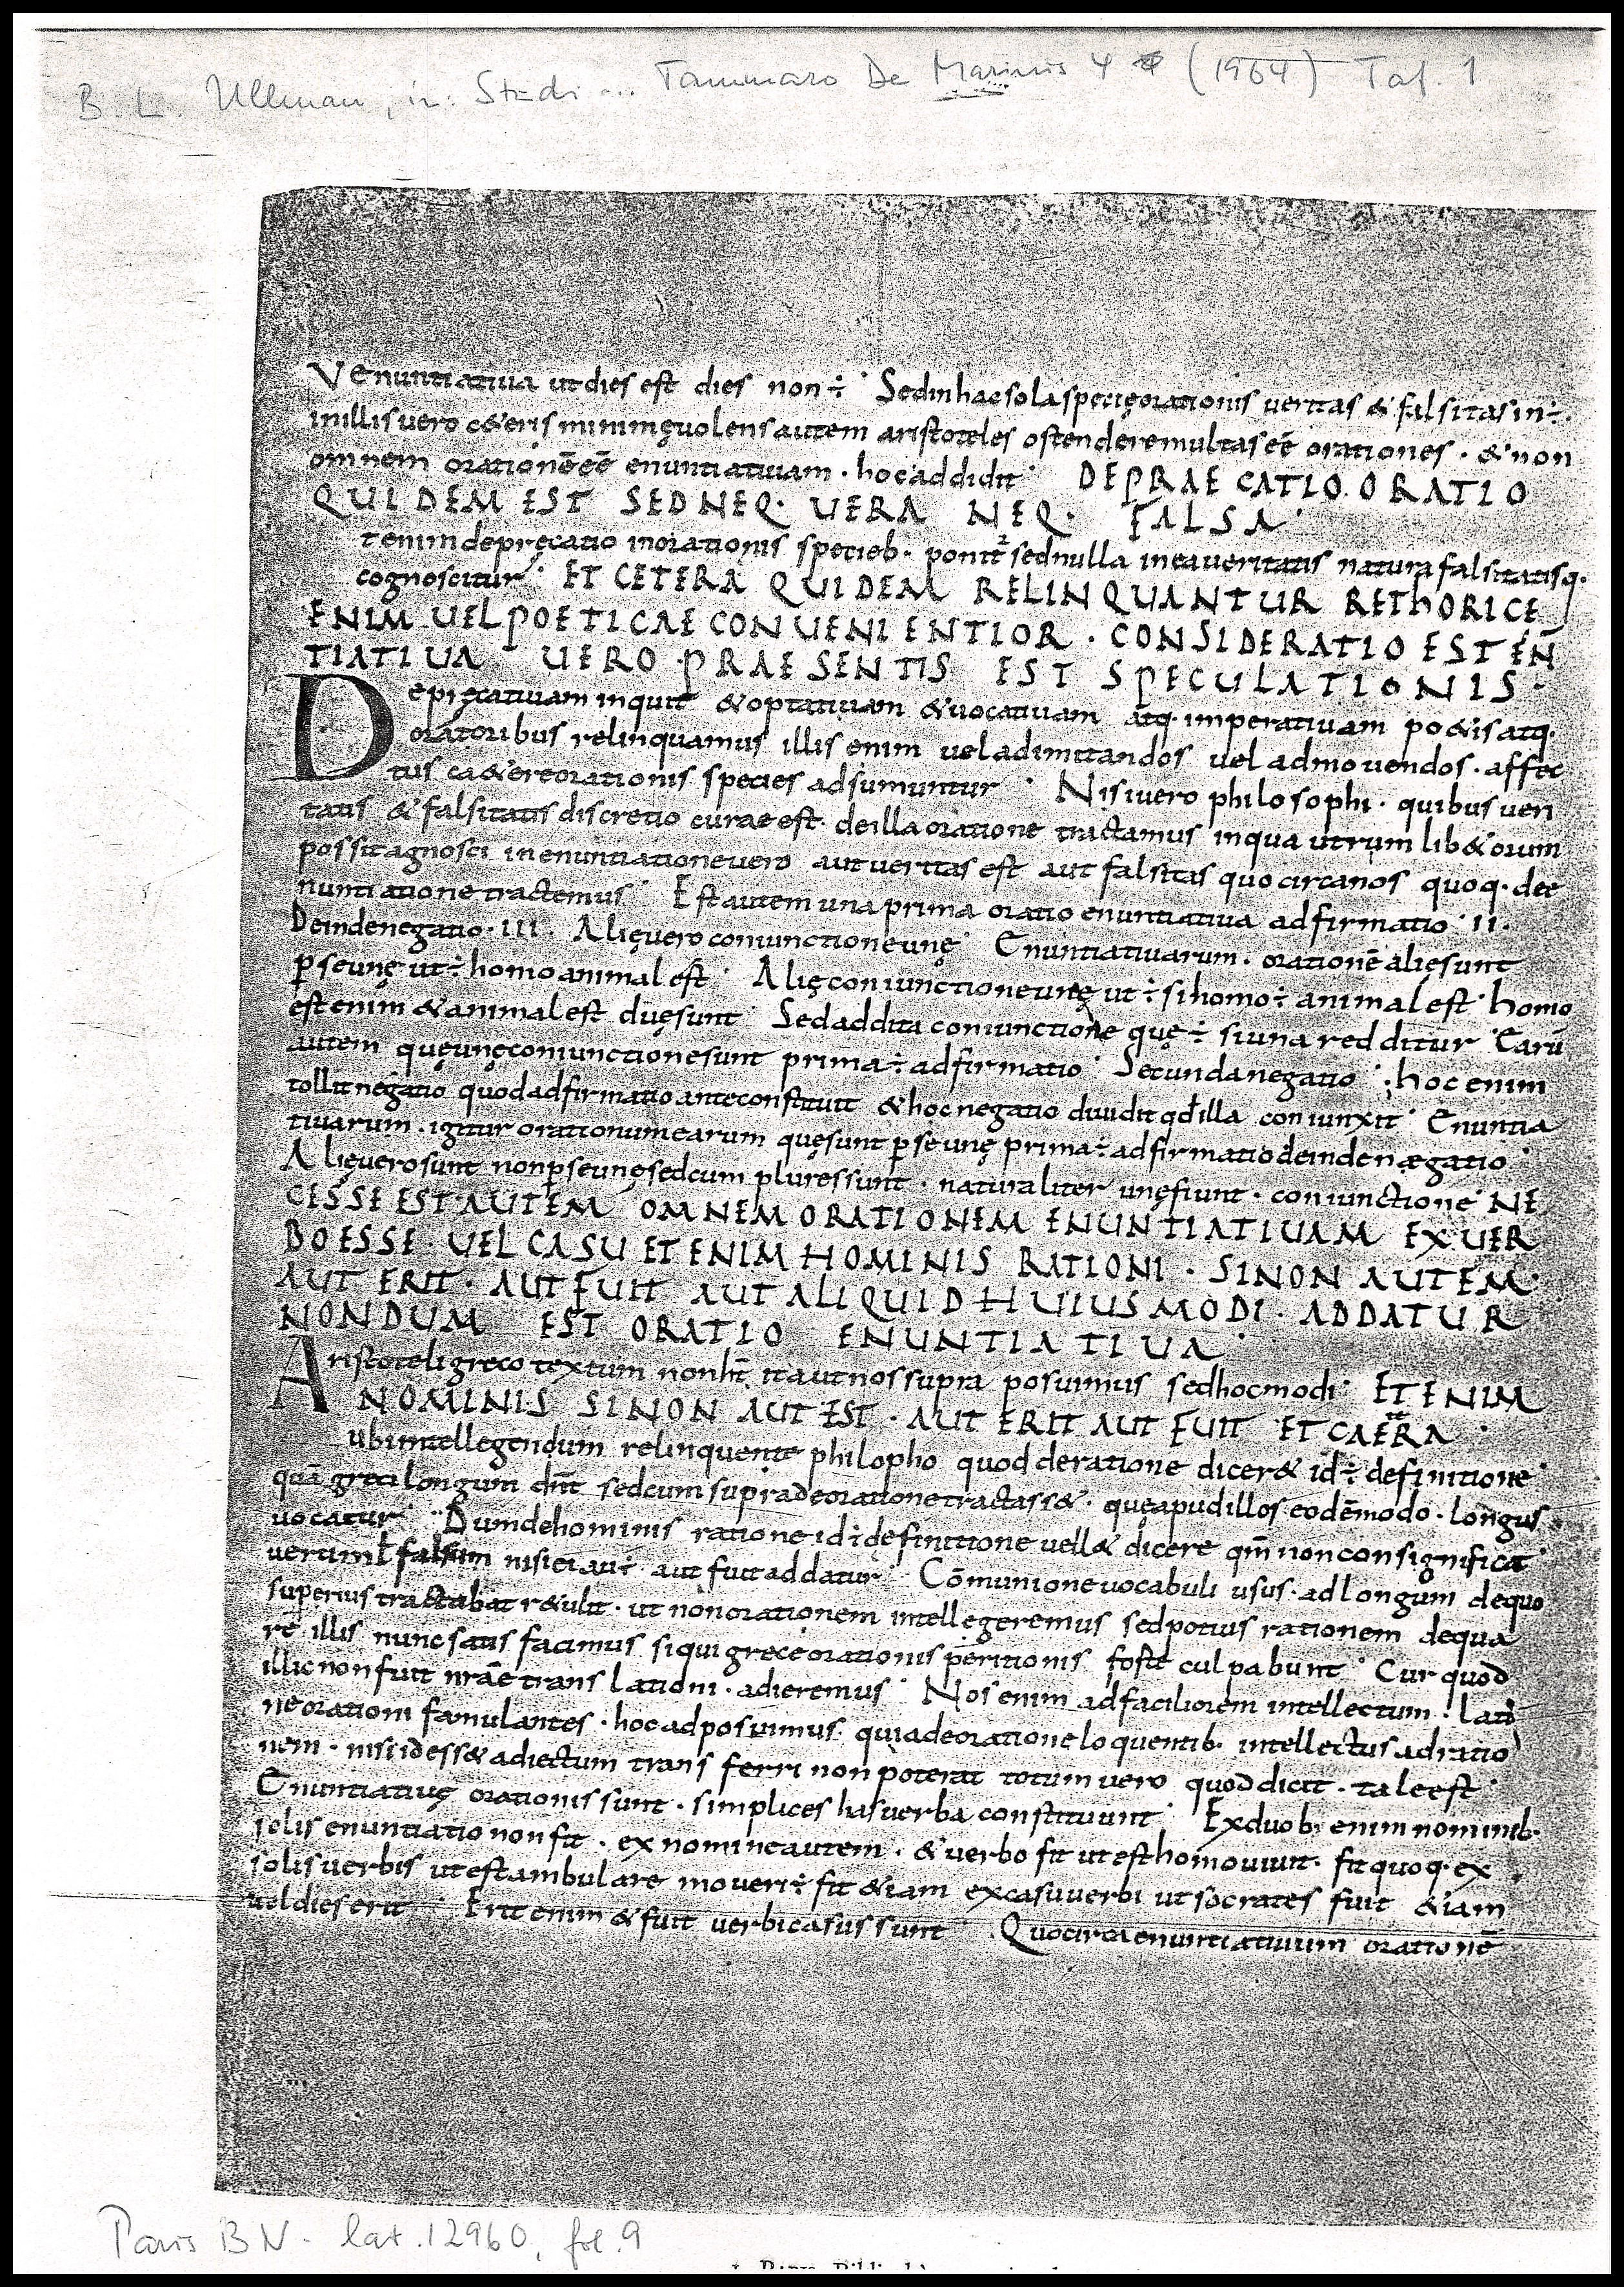 B. L. Ullman, in: Studi ... Tammaro De Marinis 4 (1964) Taf. 1
Venuntiatiua ut dies est dies non ÷ Sedinhacsolaspecięorationis ueritas & falsitasin÷.
inillis uero c&eris minimęuolensautem aristoteles ostenderemultaseē orationes . & non
omnem orationēeē enuntiatiuam . hocaddidit DEPRAECATIO. ORATIO
QUIDEM EST SEDNEQ· UERA NEQ· FALSA
tenimdepręcatio inorationis specieb· ponit² sednulla ineaueritatis naturafalsitatisq·
cognoscitur ET CETERA QUIDEM RELINQUANTUR REThORICE
ENIM UELPOETICAE CONUENIENTIOR . CONSIDERATIO ESTEN̄
TIATIUA UERO PRAESENTIS EST SPECULATIONIS .
Depręcatiuam inquit &optatiuam &uocatiuam atq· imperatiuam po&isatq·
oratoribus relinquamus illis enim ueladimitandos uel admouendos . affec
tus ca&ereorationis species adsumuntur Nisiuero philosophi . quibus ueri
tatis & falsitatis discretio curaeest . deillaoratione tractamus inqua utrumlib&orum
possitagnosci inenuntiationeuero aut ueritas est aut falsitas quocircanos quoq· dee
nuntiatione tractemus Estautem una prima oratio enuntiatiua adfirmatio II.
Deindenegatio . III . Alięuero coniunctioneunę Enuntiatiuarum . orationē alięsunt
p̱seunę ut÷ homoanimal est Alięconiunctioneunę ut÷ sihomo÷ animalest homo
estenim &animalest duęsunt Sedaddita coniunctione quę÷ siuna redditur Earū
autem quęunęconiunctionesunt prima÷ adfirmatio Secundanegatio . hoc enim
tollitnegatio quodadfirmatioanteconstituit & hocnegatio diuidit qđilla coniunxit Enuntia
tiuarum . igitur orationumearum quęsunt p̱seunę prima÷ adfirmatiodeindenægatio
Alięuerosunt nonp̱seunęsedcum pluressunt . naturaliter unęfiunt . coniunctione NE
CESSE EST AUTEM OMNEM ORATIONEM ENUNTIATIUAM EX UER
BO ESSE . UEL CASU ETENIM HOMINIS RATIONI . SINON AUTEM .
AUT ERIT . AUT FUIT AUT ALIQUID HUIUSMODI . ADDATUR
NONDUM EST ORATIO ENUNTIATIUA
Aristoteligreco textum nonht̄ itautnossupra posuimus sedhocmodi ETENIM
NOMINIS SINON AUT EST . AUT ERIT AUT FUIT ET CAETERA
ubiintellegendum relinquente philopho quod deratione dicer& id÷ definitione
quā grecilongum dn̄t sedcumsupradeorationetractass& . quęapudillos eodēmodo . longus
uocatur Dumdehominis ratione id÷ definitione uell& dicere qm̄ nonconsignificat
uerumł falsum nisiei au÷ aut fuitaddatur Cōmunioneuocabuli usus . adlongum dequo
superius tractabat r&ulit . ut nonorationem intellegeremus sedpotius rationem dequa
re illis nuncsatis facimus siqui greceorationis peritionis foste culpabunt Cur quod
illicnonfuit nrāetranslationi . adieremus Nosenim adfaciliorem intellectum . lati
neorationi famulantes . hocadposuimus . quiadeorationeloquentib· intellectusadratio
nem . nisiidess&adiectum transferri nonpoterat totumuero quoddicit . taleest
Enuntiatiuę orationis sunt . simplices hasuerba constituunt Exduob· enim nominib·
solis enuntiatio nonfit . ex nomineautem . & uerbo fit utesthomouiuit . fit quoq· ex
solisuerbis utestambulare moueri÷ fit &iam excasuuerbi utsocrates fuit &iam
ueldies erit Erit enim & fuit uerbicasussunt Quocircaenuntiatiuum orationē
Paris BN. lat. 12960, fol. 9